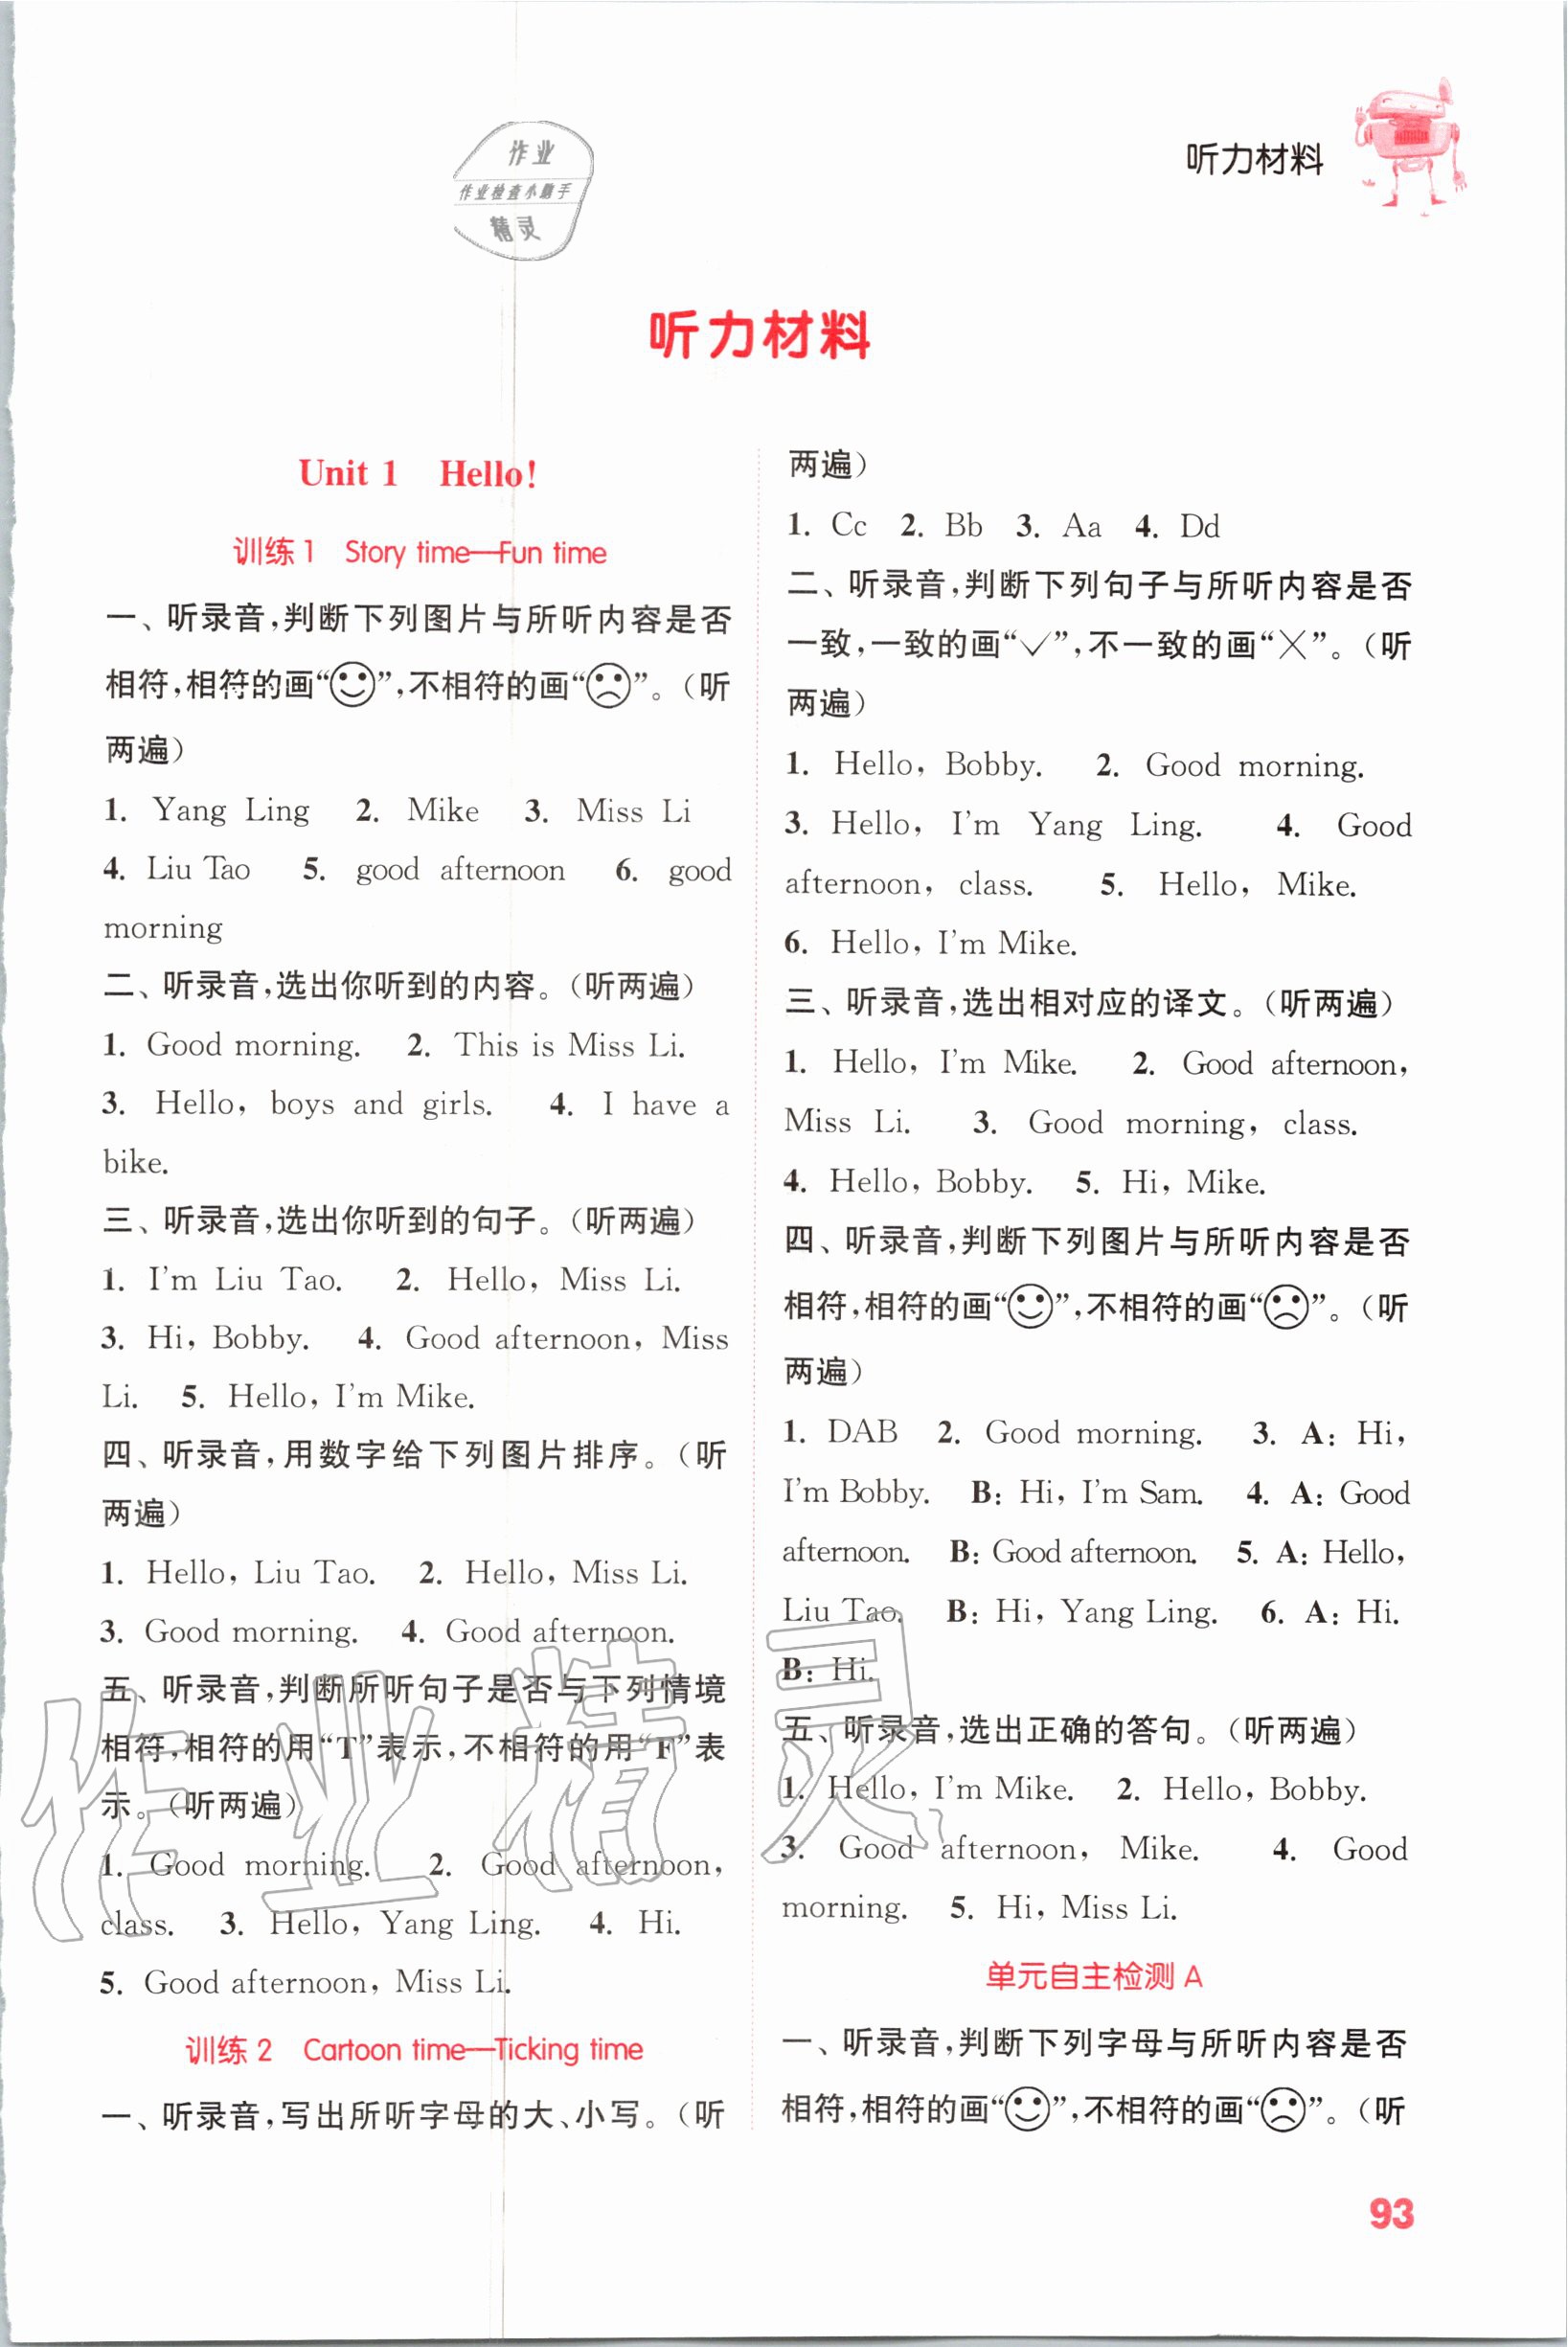 听力材料
作业
作业检查小助手
精灵
听力材料
Unit 1 Hello!
训练1 Story time—Fun time
一、听录音,判断下列图片与所听内容是否
相符,相符的画“☺”,不相符的画“☹”。(听
两遍)
1. Yang Ling 2. Mike 3. Miss Li
4. Liu Tao 5. good afternoon 6. good
morning
二、听录音,选出你听到的内容。(听两遍)
1. Good morning. 2. This is Miss Li.
3. Hello, boys and girls. 4. I have a
bike.
三、听录音,选出你听到的句子。(听两遍)
1. I'm Liu Tao. 2. Hello, Miss Li.
3. Hi, Bobby. 4. Good afternoon, Miss
Li. 5. Hello, I'm Mike.
四、听录音,用数字给下列图片排序。(听
两遍)
1. Hello, Liu Tao. 2. Hello, Miss Li.
3. Good morning. 4. Good afternoon.
五、听录音,判断所听句子是否与下列情境
相符,相符的用“T”表示,不相符的用“F”表
示。(听两遍)
1. Good morning. 2. Good afternoon,
class. 3. Hello, Yang Ling. 4. Hi.
5. Good afternoon, Miss Li.
训练2 Cartoon time—Ticking time
一、听录音,写出所听字母的大、小写。(听
两遍)
1. Cc 2. Bb 3. Aa 4. Dd
二、听录音,判断下列句子与所听内容是否
一致,一致的画“✓”,不一致的画“╳”。(听
两遍)
1. Hello, Bobby. 2. Good morning.
3. Hello, I'm Yang Ling. 4. Good
afternoon, class. 5. Hello, Mike.
6. Hello, I'm Mike.
三、听录音,选出相对应的译文。(听两遍)
1. Hello, I'm Mike. 2. Good afternoon,
Miss Li. 3. Good morning, class.
4. Hello, Bobby. 5. Hi, Mike.
四、听录音,判断下列图片与所听内容是否
相符,相符的画“☺”,不相符的画“☹”。(听
两遍)
1. DAB 2. Good morning. 3. A: Hi,
I'm Bobby. B: Hi, I'm Sam. 4. A: Good
afternoon. B: Good afternoon. 5. A: Hello,
Liu Tao. B: Hi, Yang Ling. 6. A: Hi.
B: Hi.
五、听录音,选出正确的答句。(听两遍)
1. Hello, I'm Mike. 2. Hello, Bobby.
3. Good afternoon, Mike. 4. Good
morning. 5. Hi, Miss Li.
单元自主检测 A
一、听录音,判断下列字母与所听内容是否
相符,相符的画“☺”,不相符的画“☹”。(听
作业精灵
93